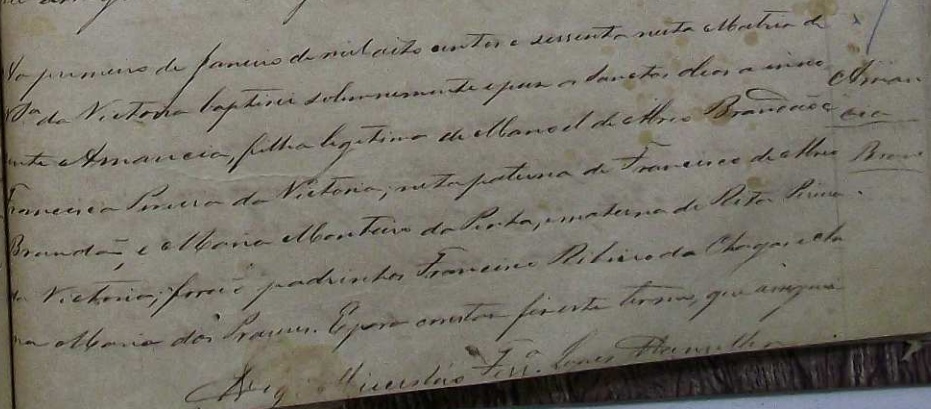 primeiro de Janeiro de mil oito centos e sessenta nesta Matriz de
N Sra da Victoria baptisei solemnemente e puz os Sanctos oleos a inno
cente Amancia, filha legitima de Manoel de Brandão e
Francisca Pereira da Victoria; neta paterna de Francisco de
Brandão, e Maria Monteiro da Penha, e materna de Rita Pereira
da Victoria; forão padrinhos Francisco Ribeiro das Chagas e
na Maria dos Prazeres. E para constar fiz este termo, que assignei
Ferra
Aman
cia
Bran